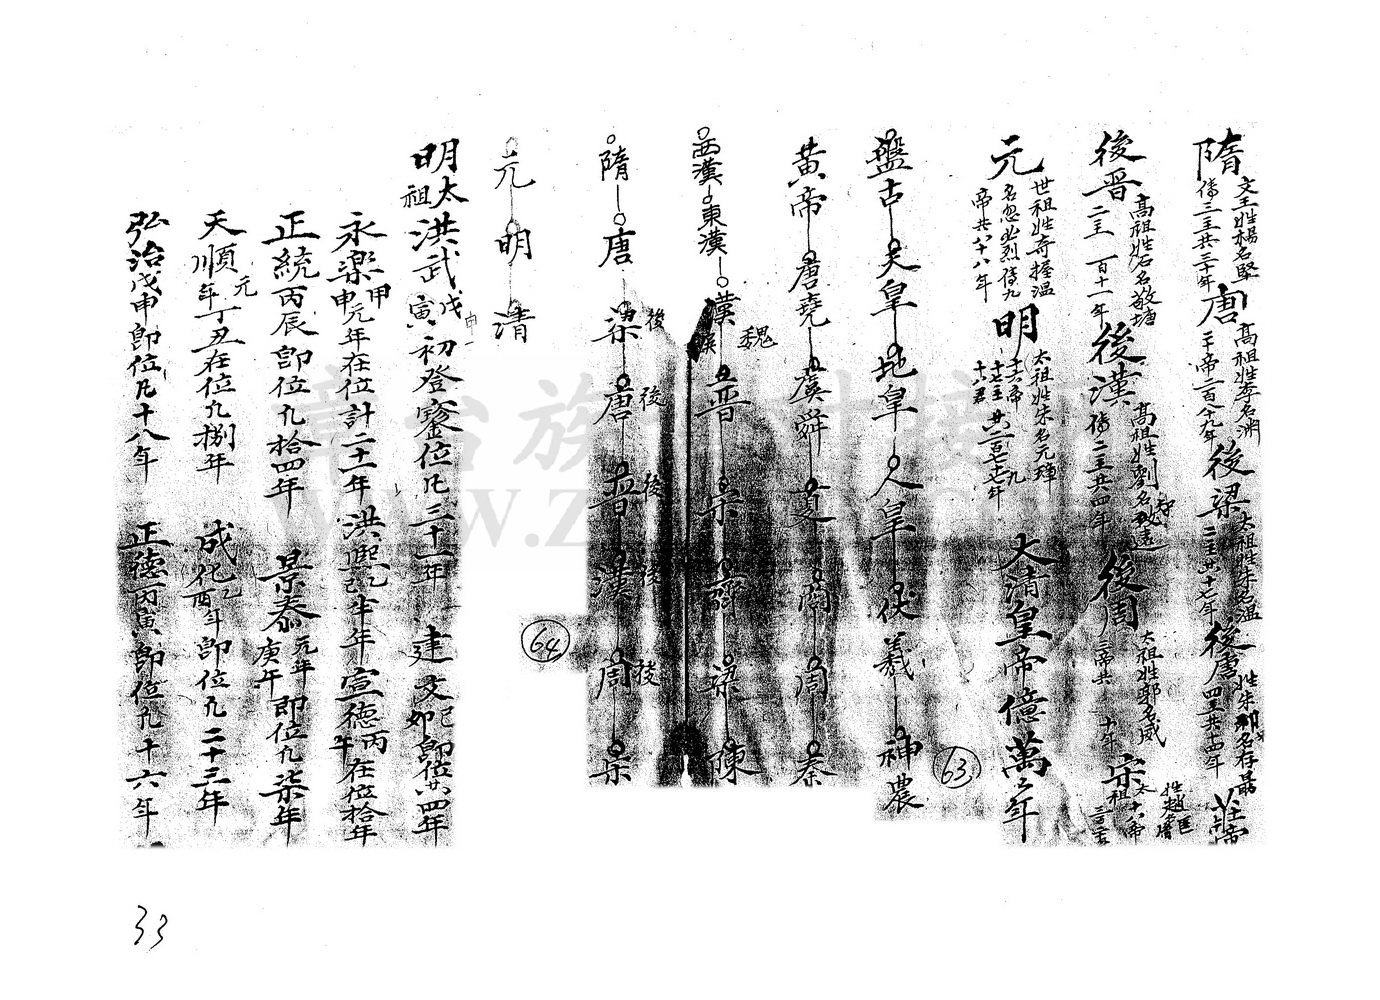 隋 文王姓楊名堅 傳三主共三十年 唐 高祖姓李名淵 二十帝二百八十九年 後梁 太祖姓朱名温 二主共十七年 後唐 姓朱耶名存勗 四主共十四年 莊帝
後晋 高祖姓石名敬塘 二主一百十一年 後漢 高祖姓劉名知遠 傳二主共四年 後周 太祖姓郭名威 三帝共十年 宋 太祖 姓趙匡 十八帝
元 世祖姓奇握温 名忽必烈傳九帝共八十八年 明 太祖姓朱名元璋 十六帝 十七主 共二百七十七年 大清皇帝億萬萬年
盤古 天皇 地皇 人皇 伏羲 神農
63
黄帝 唐堯 虞舜 夏 商 周 秦
西漢 東漢 漢 魏 晋 宋 齊 梁 陳
隋 唐 後梁 後唐 後晋 後漢 後周 宋
64
元 明 清
明太祖洪武戊寅初登寳位凡三十一年 建文己卯即位共四年
永樂甲申元年在位計二十一年 洪熙乙巳半年 宣德丙午在位拾年
正統丙辰即位九拾四年 景泰元年庚午即位九柒年
天順元年丁丑在位九捌年 成化乙酉年即位九二十三年
弘治戊申即位凡十八年 正德丙寅即位九十六年
33